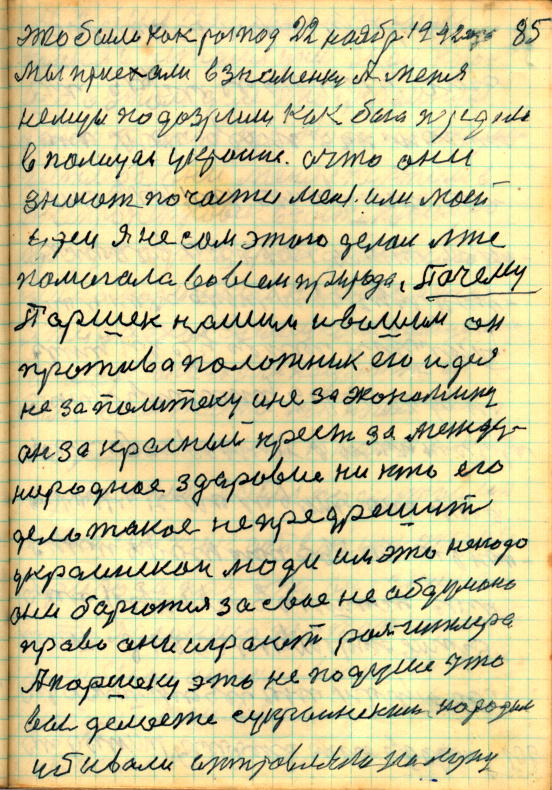 это было как раз под 22 ноябр 1942 85
мы приехали взнаменку А меня
немци подозрили как бы я предал
в пользу украин. ачто они
знают почасти мен. или моей
идеи Я не сам этого делал мне
помогала вовсем природа, Почему
Паршек нашим ивашим он
противаположник его идея
не заполитеку ине заэкономику
он за красный крест за между-
народное здаровие ни кто его
дело такое непредрешит
украински люди им это ненадо
они барютия засвое не обдумано
право они играют рол гитлера
Апаршеку это не подуше что
вы делаете сукраинским народом
убивали